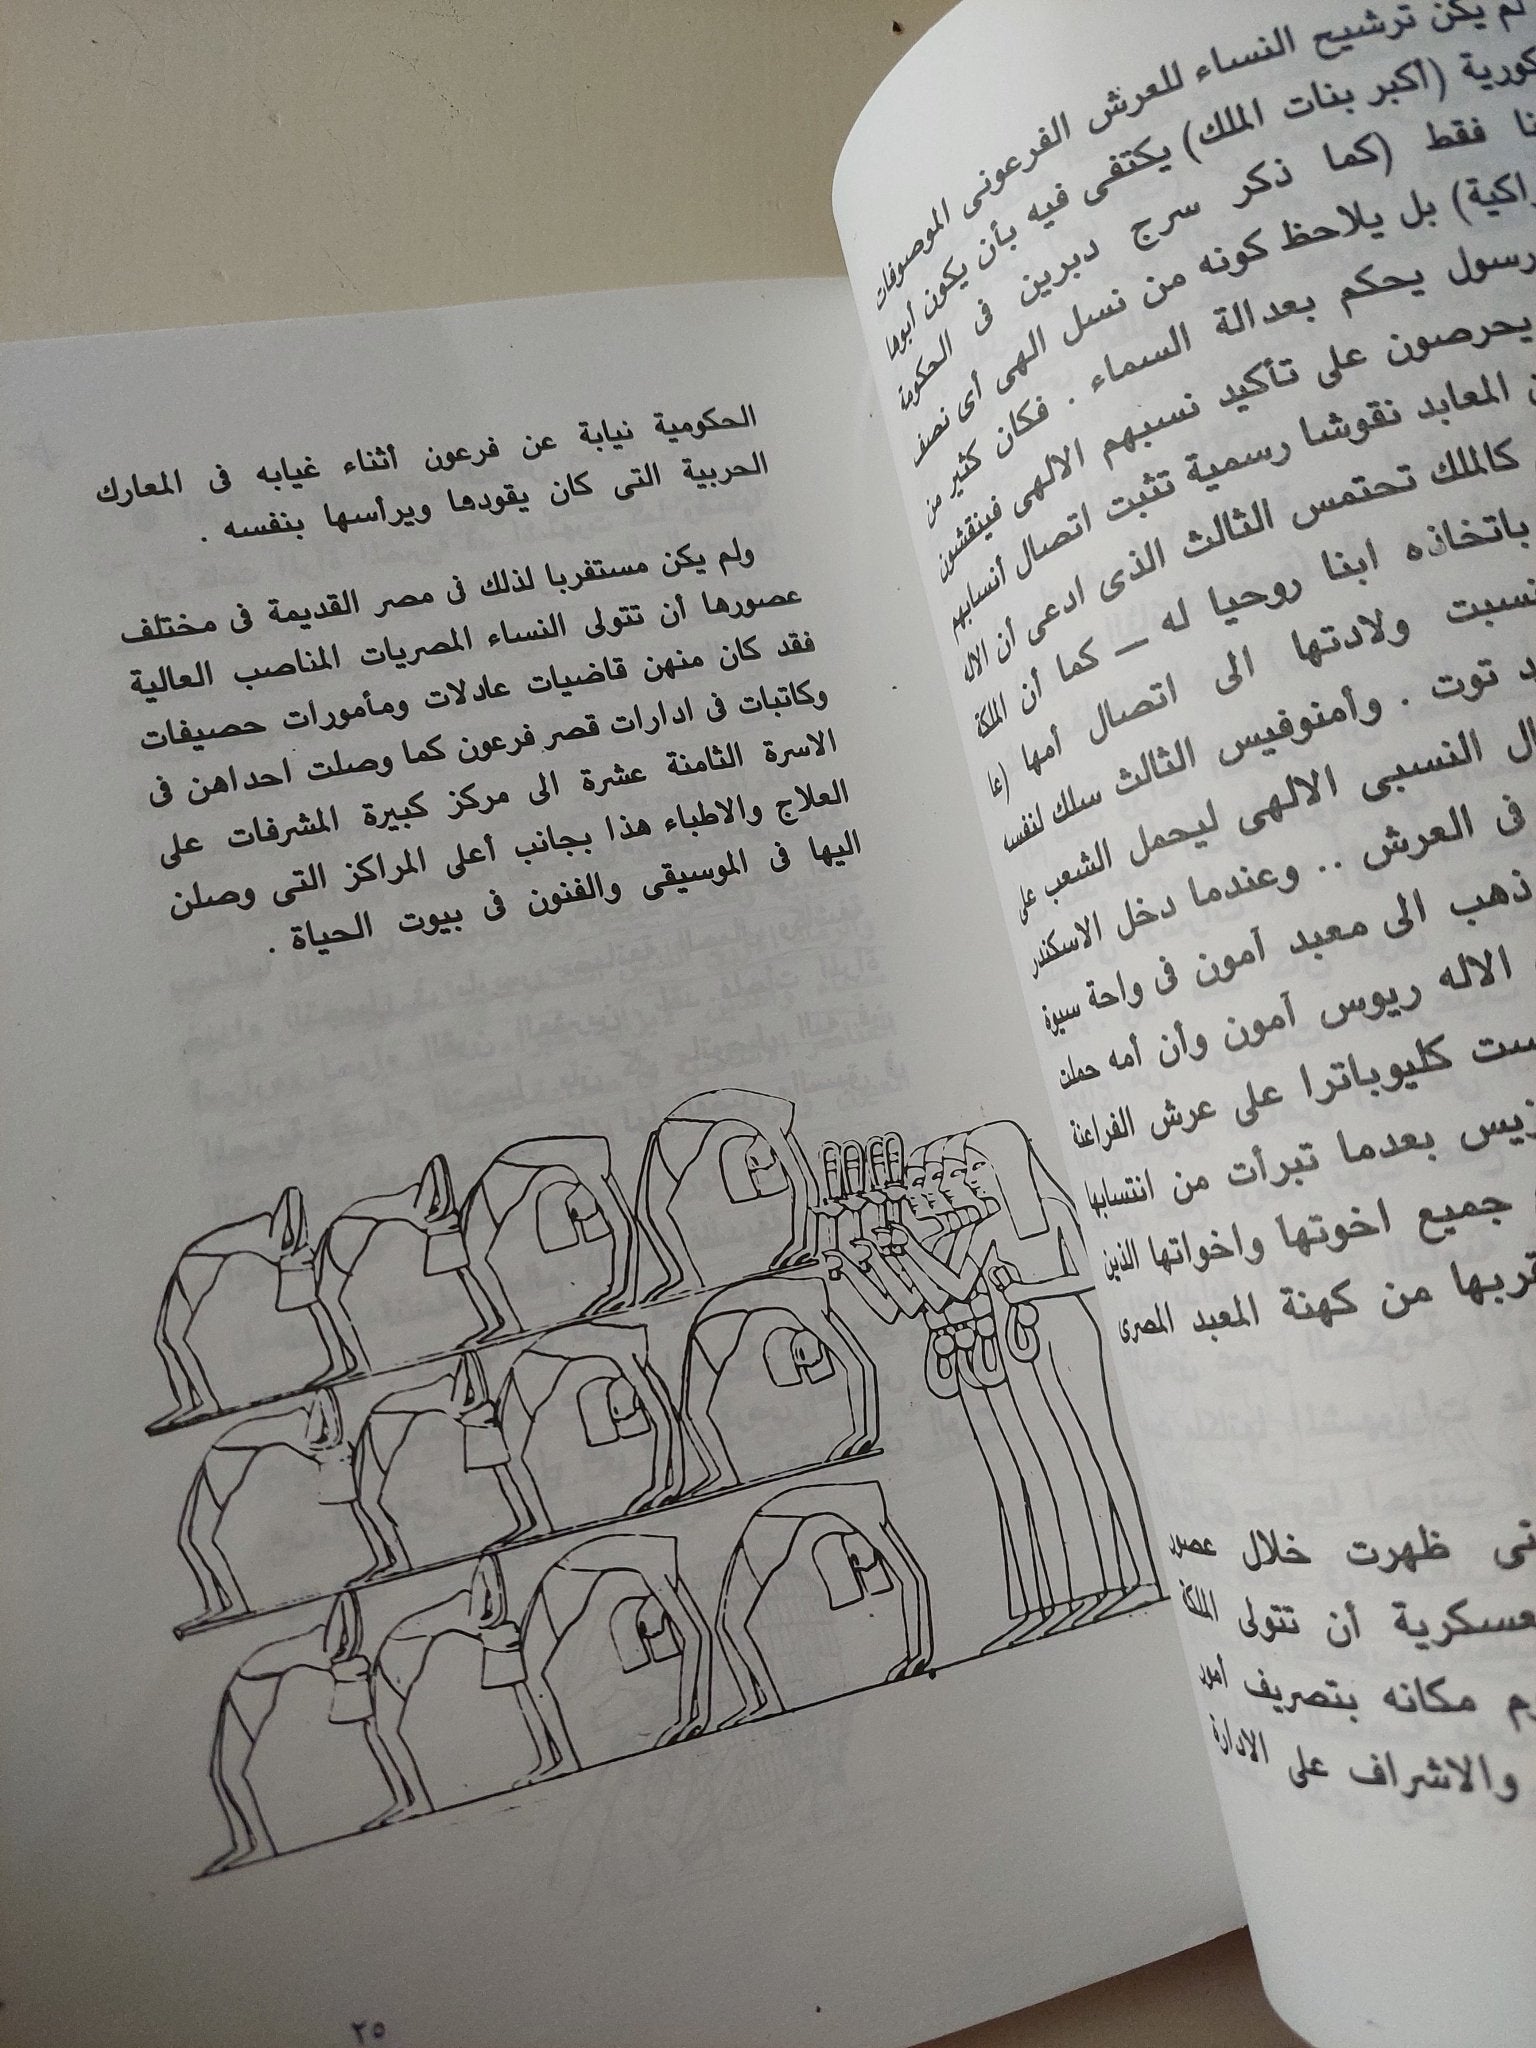 لم يكن ترشيح النساء للعرش الفرعونى الموصوفات
(أكبر بنات الملك) يكتفى فيه بأن يكون أبوها
فقط (كما ذكر سرج دبرين فى الحكومة
بل يلاحظ كونه من نسل الهى أى نصف
رسول يحكم بعدالة السماء . فكان كثير من
يحرصون على تأكيد نسبهم الالهى فينقشون
المعابد نقوشا رسمية تثبت اتصال أنسابهم
كالملك تحتمس الثالث الذى ادعى أن الاله
باتخاذه ابنا روحيا له — كما أن الملكة
نسبت ولادتها الى اتصال أمها
توت . وأمنوفيس الثالث سلك لنفسه
النسبى الالهى ليحمل الشعب على
فى العرش .. وعندما دخل الاسكندر
ذهب الى معبد آمون فى واحة سيوة
الاله ريوس آمون وأن أمه حملت
كليوباترا على عرش الفراعنة
بعدما تبرأت من انتسابها
جميع اخوتها واخواتها الذين
من كهنة المعبد المصرى
ظهرت خلال عصور
أن تتولى الملكة
مكانه بتصريف أمور
والاشراف على الادارة
الحكومية نيابة عن فرعون أثناء غيابه فى المعارك
الحربية التى كان يقودها ويرأسها بنفسه .
ولم يكن مستغربا لذلك فى مصر القديمة فى مختلف
عصورها أن تتولى النساء المصريات المناصب العالية
فقد كان منهن قاضيات عادلات ومأمورات حصيفات
وكاتبات فى ادارات قصر فرعون كما وصلت احداهن فى
الاسرة الثامنة عشرة الى مركز كبيرة المشرفات على
العلاج والاطباء هذا بجانب أعلى المراكز التى وصلن
اليها فى الموسيقى والفنون فى بيوت الحياة .
٢٥